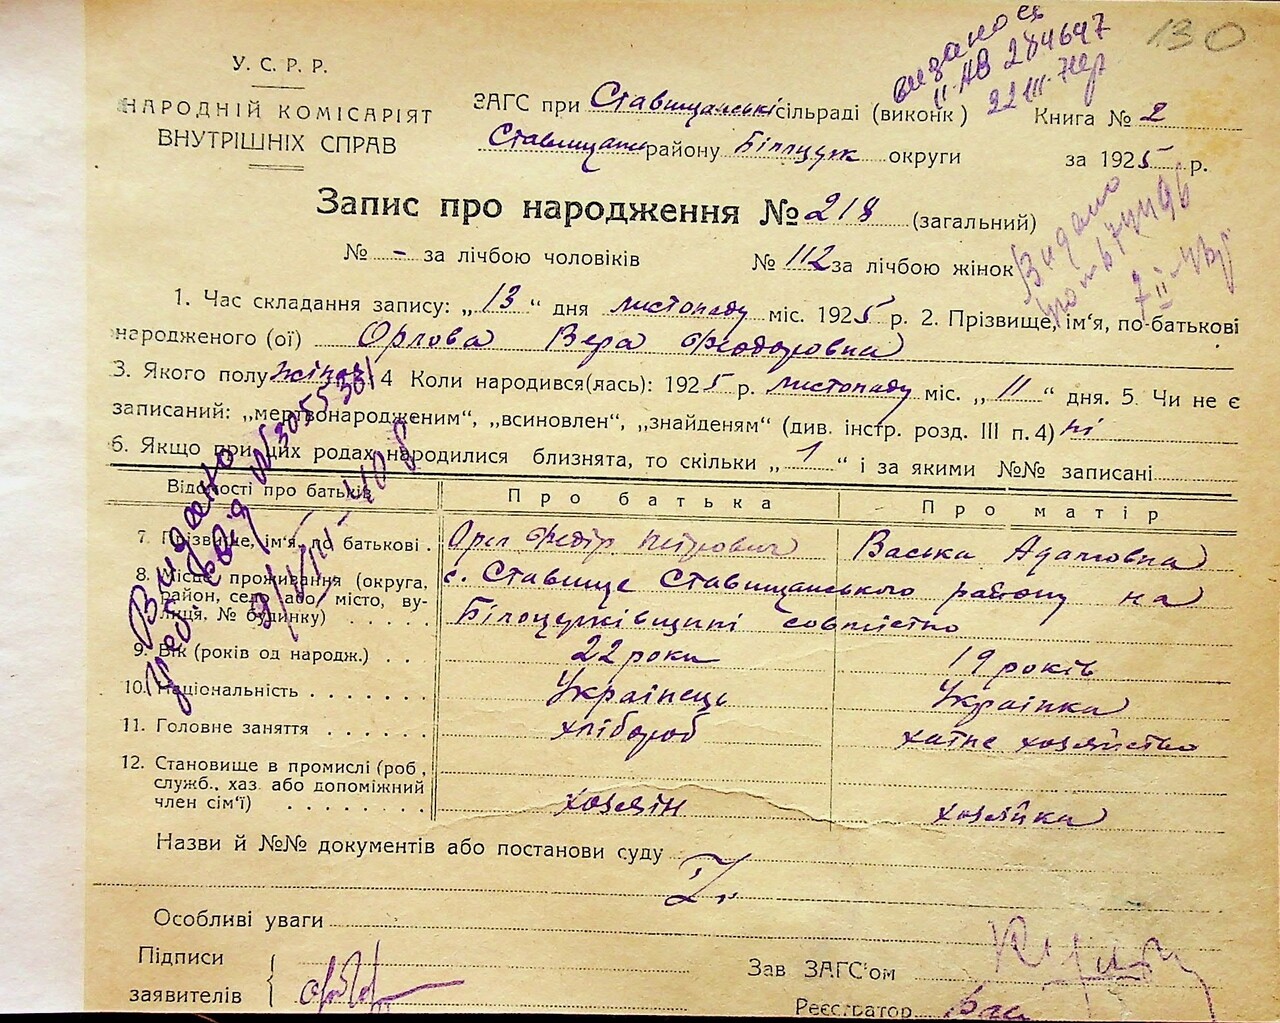 130
видано
ІІ-АВ 284647
22 ІІІ-71 р
У. С. Р. Р.
НАРОДНІЙ КОМІСАРІЯТ
ВНУТРІШНІХ СПРАВ
ЗАГС при Ставищанські сільраді (виконк) Книга № 2
Ставищан району Білоцерк округи за 1925 р.
Запис про народження № 218 (загальний)
№ - за лічбою чоловіків № 112 за лічбою жінок
Видано
1. Час складання запису: „13“ дня листопаду міс. 1925 р. 2. Прізвище, ім'я, по-батькові
народженого (ої) Орлова Вера Феодоровна
3. Якого полу жіноч 4 Коли народився(лась): 1925 р. листопаду міс. „11“ дня. 5. Чи не є
записаний: „мертвонародженим“, „всиновлен“, „знайденям“ (див. інстр. розд. III п. 4) ні
6. Якщо при цих родах народилися близнята, то скільки „1“ і за якими №№ записані
Видано
Відомості про батьків Про батька Про матір
7. Прізвище, ім'я, по батькові. Орел Федір Петрович Васька Адамовна
8. Місце проживання (округа, район, село або місто, вулиця, № будинку) с. Ставище Ставищанського району на
Білоцерківщині совместно
9. Вік (років од народж.) 22 роки 19 років
10. Національність Українець Українка
11. Головне заняття хлібороб хатне хозяйство
12. Становище в промислі (роб,
служб., хаз. або допоміжний
член сім'ї) хозяін хозяйка
Назви й №№ документів або постанови суду
Особливі уваги
Підписи
заявителів
Зав ЗАГС'ом
Реєстратор